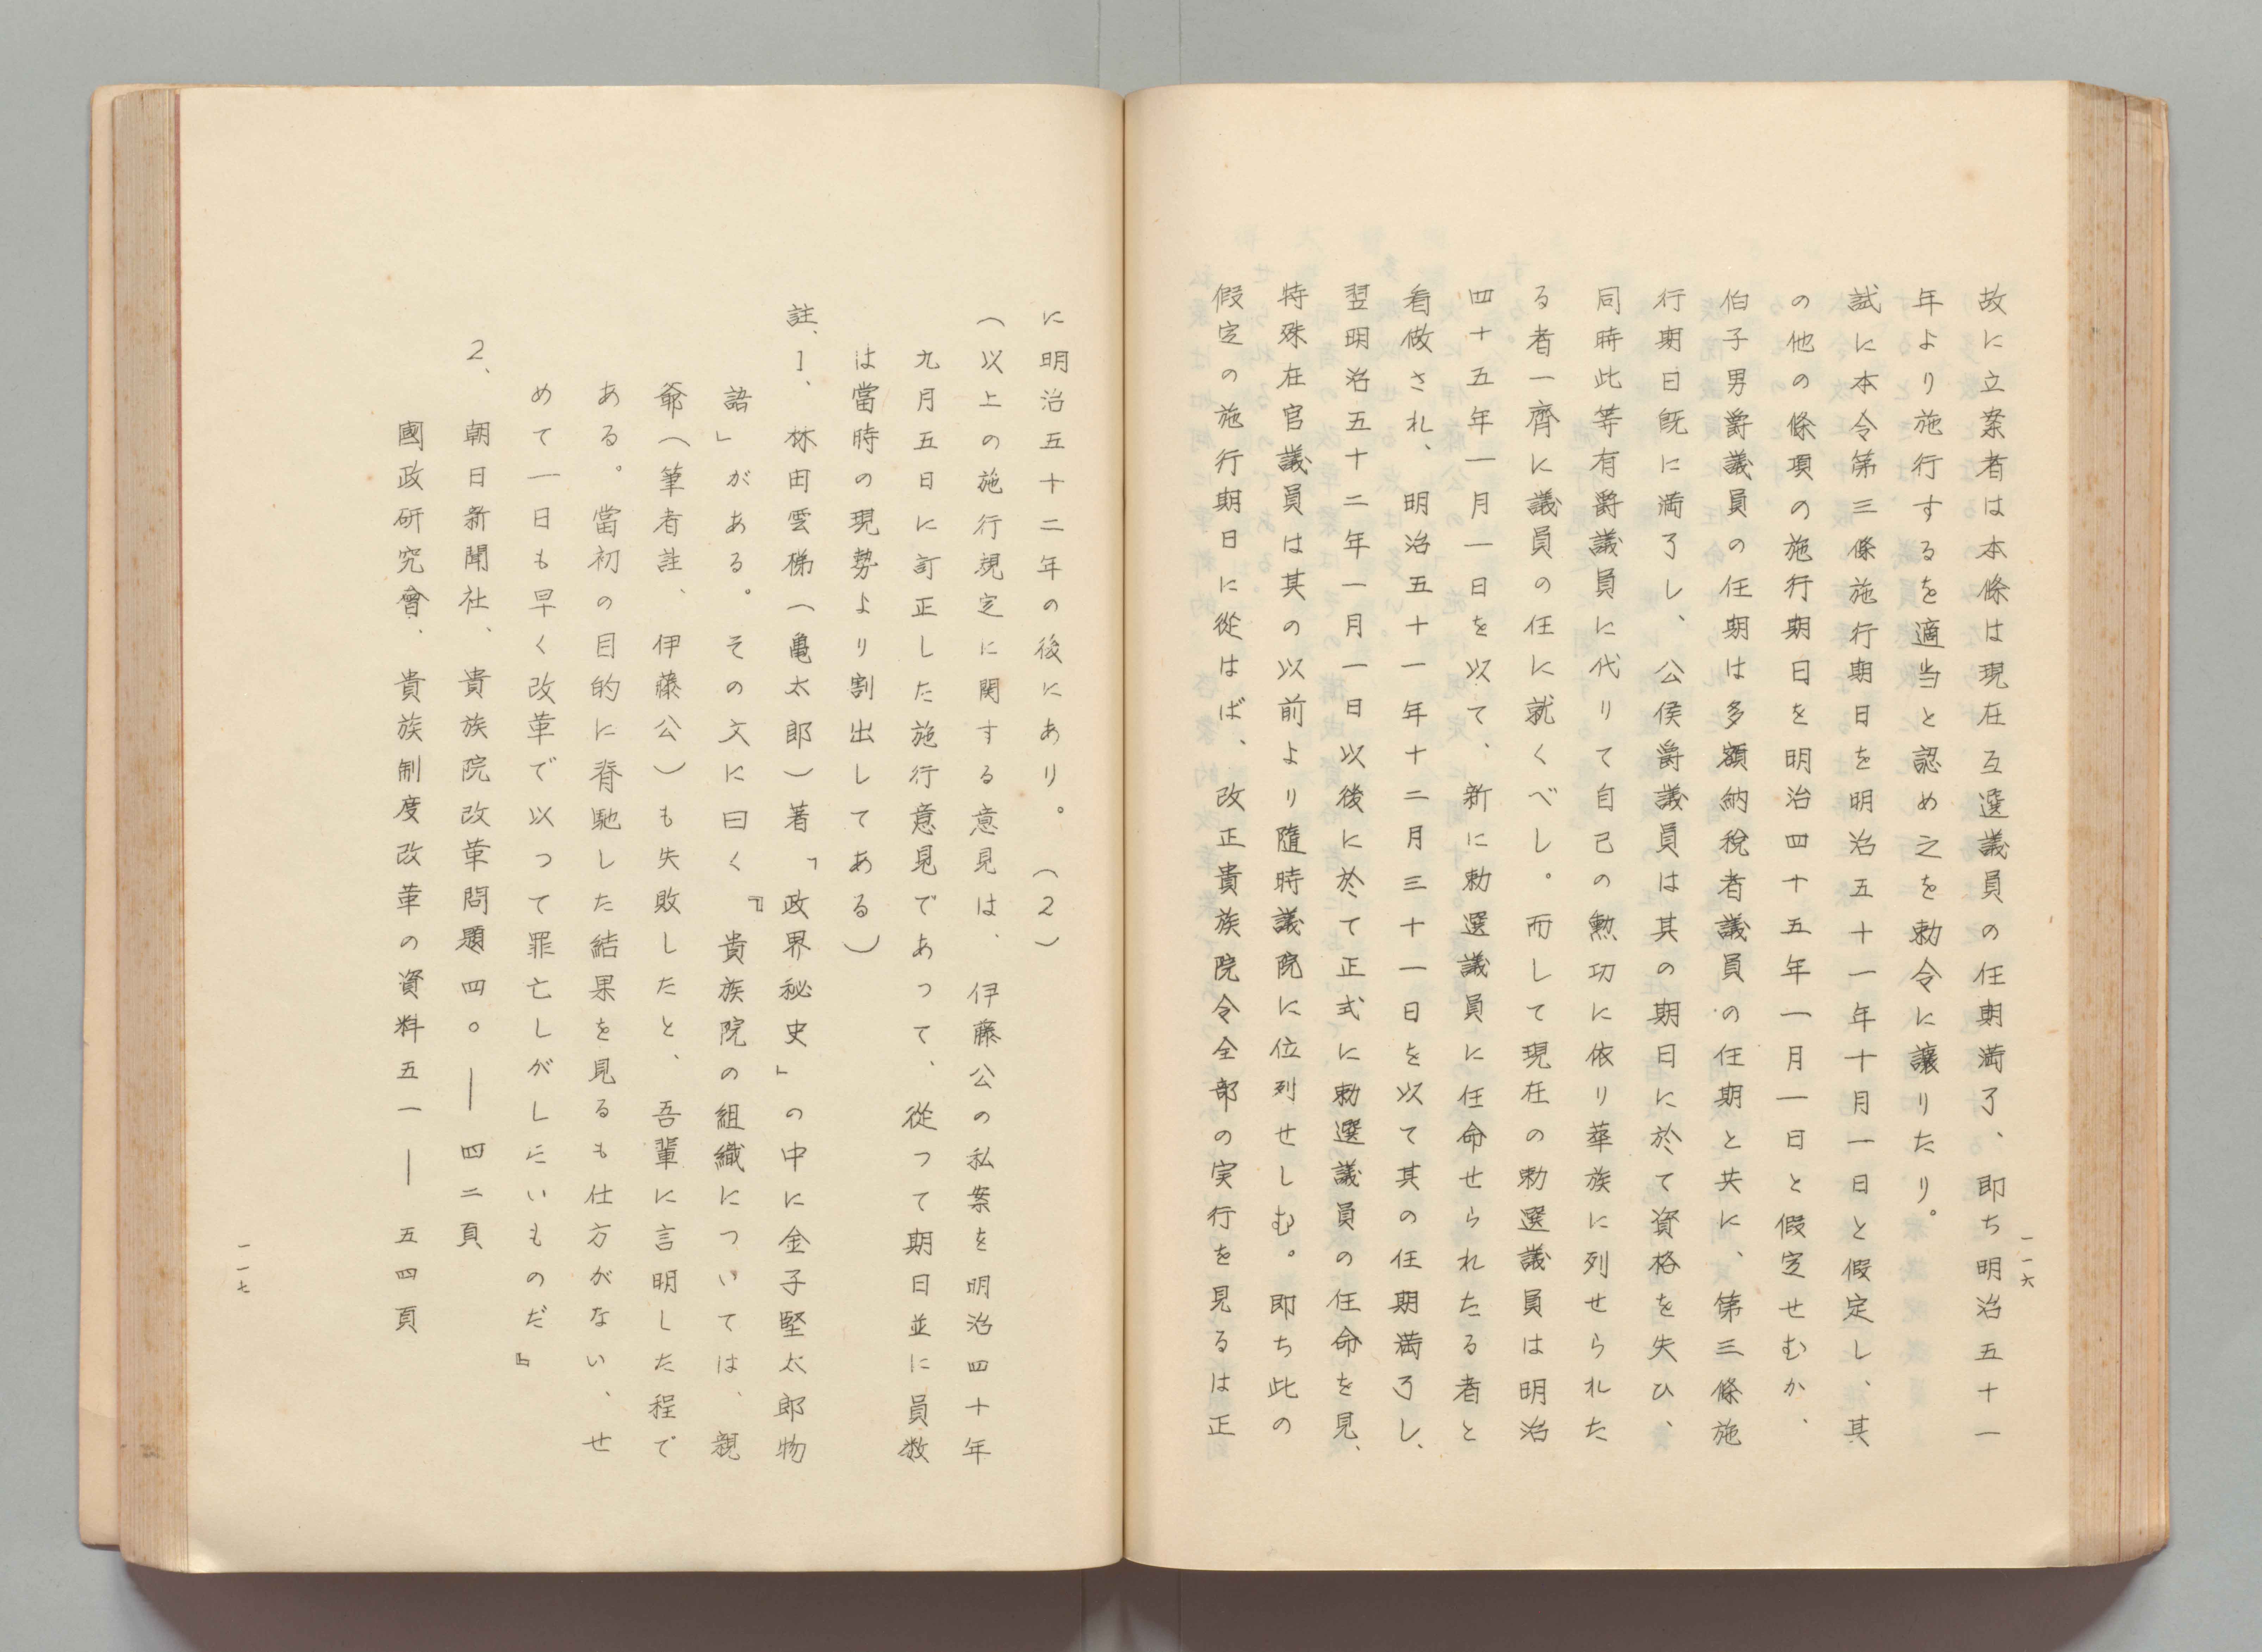 故に立案者は本條は現在互選議員の任期満了、即ち明治五十一
年より施行するを適当と認め之を勅令に譲りたり。
試に本令第三條施行期日を明治五十一年十月一日と假定し、其
の他の條項の施行期日を明治四十五年一月一日と假定せむか、
伯子男爵議員の任期は多額納税者議員の任期と共に、第三條施
行期日旣に満了し、公侯爵議員は其の期日に於て資格を失ひ、
同時此等有爵議員に代りて自己の勲功に依り華族に列せられた
る者一齊に議員の任に就くべし。而して現在の勅選議員は明治
四十五年一月一日を以て、新に勅選議員に任命せられたる者と
看做され、明治五十一年十二月三十一日を以て其の任期満了し、
翌明治五十二年一月一日以後に於て正式に勅選議員の任命を見、
特殊在官議員は其の以前より隨時議院に位列せしむ。即ち此の
假定の施行期日に從はば、改正貴族院令全部の実行を見るは正
一一六
に明治五十二年の後にあり。(2)
(以上の施行規定に関する意見は、伊藤公の私案を明治四十年
九月五日に訂正した施行意見であって、從って期日並に員数
は當時の現勢より割出してある)
註、1、林田雲梯(亀太郎)著「政界秘史」の中に金子堅太郎物
語」がある。その文に曰く『貴族院の組織については、親
爺(筆者註、伊藤公)も失敗したと、吾輩に言明した程で
ある。當初の目的に脊馳した結果を見るも仕方がない、せ
めて一日も早く改革で以つて罪亡しがしたいものだ』
2、朝日新聞社、貴族院改革問題四〇―四二頁
國政研究會、貴族制度改革の資料五一―五四頁
一一七